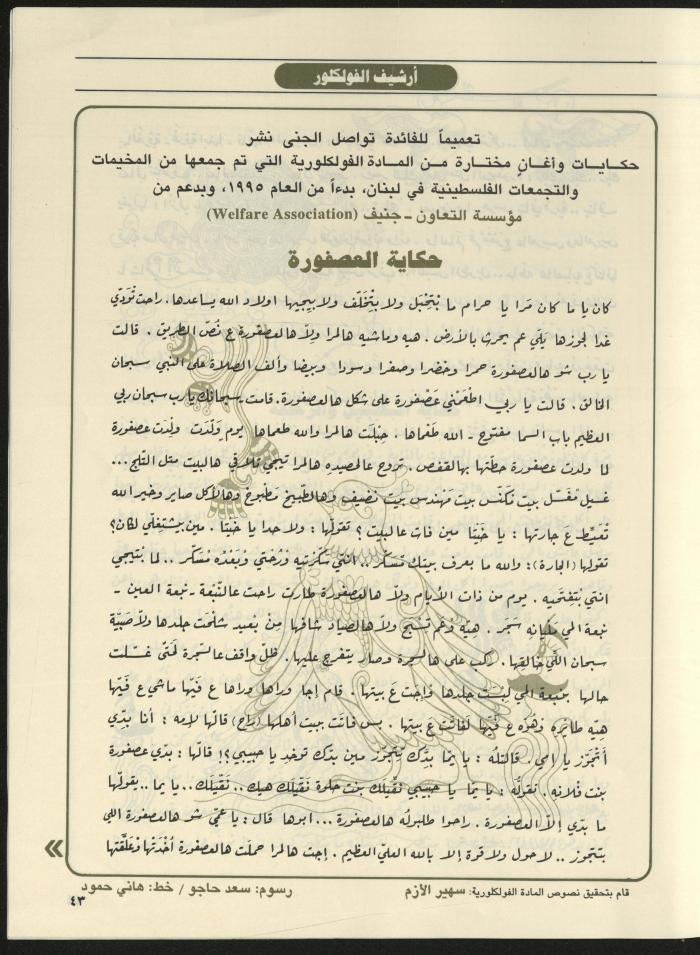 أرشيف الفولكلور
تعميماً للفائدة تواصل الجنى نشر
حكايـات وأغانٍ مختارة مـن المـادة الفولكلورية التي تم جمعها من المخيمات
والتجمعات الفلسطينية في لبنان، بدءاً من العام ١٩٩٥، وبدعم من
مؤسسة التعاون ـ جنيف (Welfare Association)
حكاية العصفورة
كان يا ما كان مَرا يا حرام ما بْتِحْبَل ولا بِتْخَلّف ولا بيجيها اولاد الله يساعدها. راحت تْوَدّي
غدا لجوزها يَلّي عم يحرث بالأرض. هيه وماشيه هالمرا ولاّ هالعصفورة ع نُصّ الطريق. قالت
يا رب شو هالعصفورة حمرا وخضرا وصفرا وسودا وبيضا وألف الصلاة على النبي سبحان
الخالق. قالت يا ربي اطْعَمْني عَصْفورة على شكل هالعصفورة. قامت سبحانك يا رب سبحان ربي
العظيم باب السما مفتوح ـ الله طَعْماها. حِبْلَت هالمرا والله طعماها يوم وَلّدَت ولْدَت عصفورة
لما ولدت عصفورة حطّتها بهالقفص. تروح عالحصيده هالمرا تيجي تلاقي هالبيت متل التلج...
غسيل مْغَسّل بيت مْكَنّس بيت مْهَندس بيت نضيف وهالطبيخ مَطْبوخ وهالأكل صاير وخير الله
تْعَيِّط عَ جارتها: يا خَيْتا مين فات عالبيت؟ تقولّها: ولا حدا يا خَيْتا. مين بيشتغلّي لكان؟
تقولّها (الجارة): والله ما بعرف بيتك مْسَكّر.. انتي سَكّرْتيه ورُحْتي وبَعْدُه مْسَكّر.. لما بْتيجي
انتي بتفتحيه. يوم من ذات الأيام ولاّ هالعصفورة طارت راحت عالنّبْعة ـ نبعة العين ـ
نبعة المي مَلْيانِه سَجَر. هيّه وعم تسبح ولاّ هالصياد شافها مِنْ بعيد شلْحَت جلدها ولاّ صَبيّة
سبحان اللّي خالِقها. ركب على هالسجرة وصار يتفرج عليها. ظلّ واقف عالسّجرة لَمّى غسّلت
حالها بنبعة المي لبْسَت جلدها وإجت عَ بيتها. قام إجا وراها وراها ع فَيّها ماشي ع فَيّها
هيّه طايره وْهُوّه ع فَيّها لفاتت عَ بيتها. بس فاتَت بيت أهلها (راح) قالّها لإمه: أنا بدّي
أتْجَوّز يا امي. قالتلُه: يا يمّا بدّك تِتْجَوّز مين بدّك توخد يا حبيبي؟! قالّها: بدّي عصفورة
بنت فلانه. تقولُّه: يا يمّا يا حبيبي نَقّيلَك بنت حلوة نَقّيلَك هيك.. نَقّيلَك.. يا يما.. يقولّها
ما بدّي إلاّ العصفورة. راحوا طلبولُه هالعصفورة... ابوها قال: يا عمّي شو هالعصفورة اللي
بتتجوز.. لا حول ولا قوة إلا بالله العليّ العظيم. إجت هالمرا حملَت هالعصفورة أخْدَتْها وْعَلّقَتها
قام بتحقيق نصوص المادة الفولكلورية: سهير الأزم
رسوم: سعد حاجو / خط: هاني حمود
٤٣